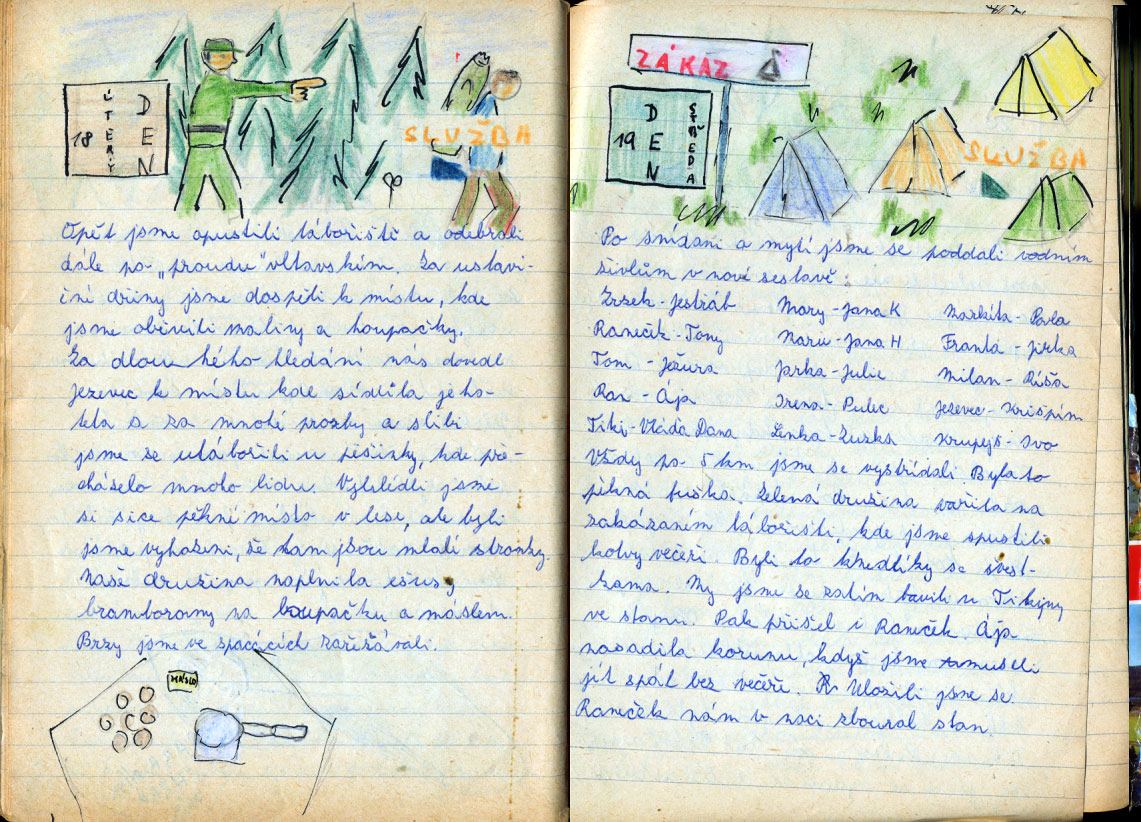 18 ÚTERÝ DEN
SLUŽBA
Opět jsme opustili tábořiště a odebrali
dále po „proudu" vltavském. Za ustavi-
ční dřiny jsme dospěli k místu, kde
jsme objevili maliny a houpačky.
Za dlouhého hledání nás dovedl
Jezevec k místu kde sídlila jeho
teta a za mnohé prozby a slibi
jsme se utábořili u pěšinky, kde pře-
cháselo mnoho lidu. Vyhlídli jsme
si sice pěkné místo v lese, ale byli
jsme vyhozeni, že tam jsou mladí stromky.
Naše družina naplnila ešusy
bramborovny na loupačku a máslem.
Brzy jsme ve spacácích zařezávali.
MÁSLO
ZÁKAZ
19 DEN STŘEDA
SLUŽBA
Po snídani a mytí jsme se poddali vodním
živlům v nové sestavě:
Zrzek - Jestřáb Mary - Jana K Markéta - Pavla
Raneček - Tony Naru - Jana H Franta - Jirka
Tom - Ježura Jirka - Julie Milan - Ríša
Ran - Ája Irena - Pulec Jezevec - Krispím
Tiki - Vláďa Dana Lenka - Zuzka Krupejš - Ivo
Vždy po 5 km jsme se vystřídali. Byla to
pěkná fuška. Zelená družina vařila na
zakázaném tábořišti, kde jsme spustili
kotvy večeři. Byli to knedlíky se švest-
kama. My jsme se zatím bavili u Tikiny
ve stanu. Pak přišel i Raneček. Ája
nasadila korunu, když jsme museli
jít spát bez večeře. Uložili jsme se.
Raneček nám v noci zboural stan.